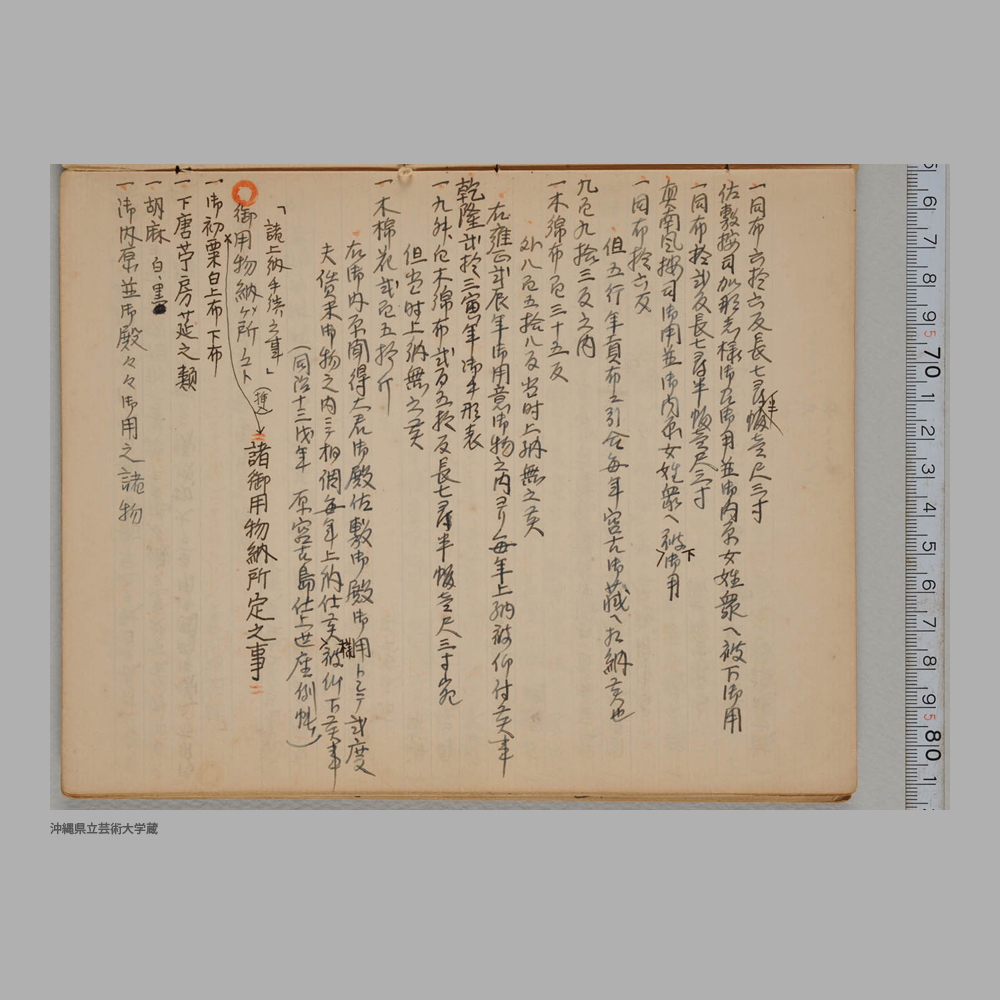 一同布六拾六反長七尋半幅壱尺三寸
佐敷按司加那志様御召御用並御内原女姓衆へ被下御用
一同布拾弐反長七尋半幅壱尺三寸
真南風按司御用並御内原女姓衆へ被下御用
一同布拾六反
但五行年貢布ニ引合毎年宮古御蔵へ相納候也
九百九拾三反之内
一木綿布百三十五反
外八百五拾八反当時上納無之候
右雍正弐辰年御用意御物之内ヨリ毎年上納被仰付候事
乾隆弐拾三寅年御手形表
一九舛百木綿布弐百五拾反長七尋半幅壱尺三寸宛
但当时上納無之候
一木棉花弐百五拾斤
右御内原聞得大君御殿佐敷御殿御用トシテ弐度
夫賃米御物之内ニテ相調毎年上納仕候被仰下候事
(同治十三戌年 原宮古島仕上世座例帳)
「諸上納手続之事」
御用物納ヶ所ノコト (挿入) 諸御用物納所定之事
一御初粟白上布下布
一下唐苧房莚之類
一胡麻 白、黒
一御内原並御殿々々御用之諸物
5 6 7 8 9 5 70 1 2 3 4 5 6 7 8 9 5 80 1
沖縄県立芸術大学蔵